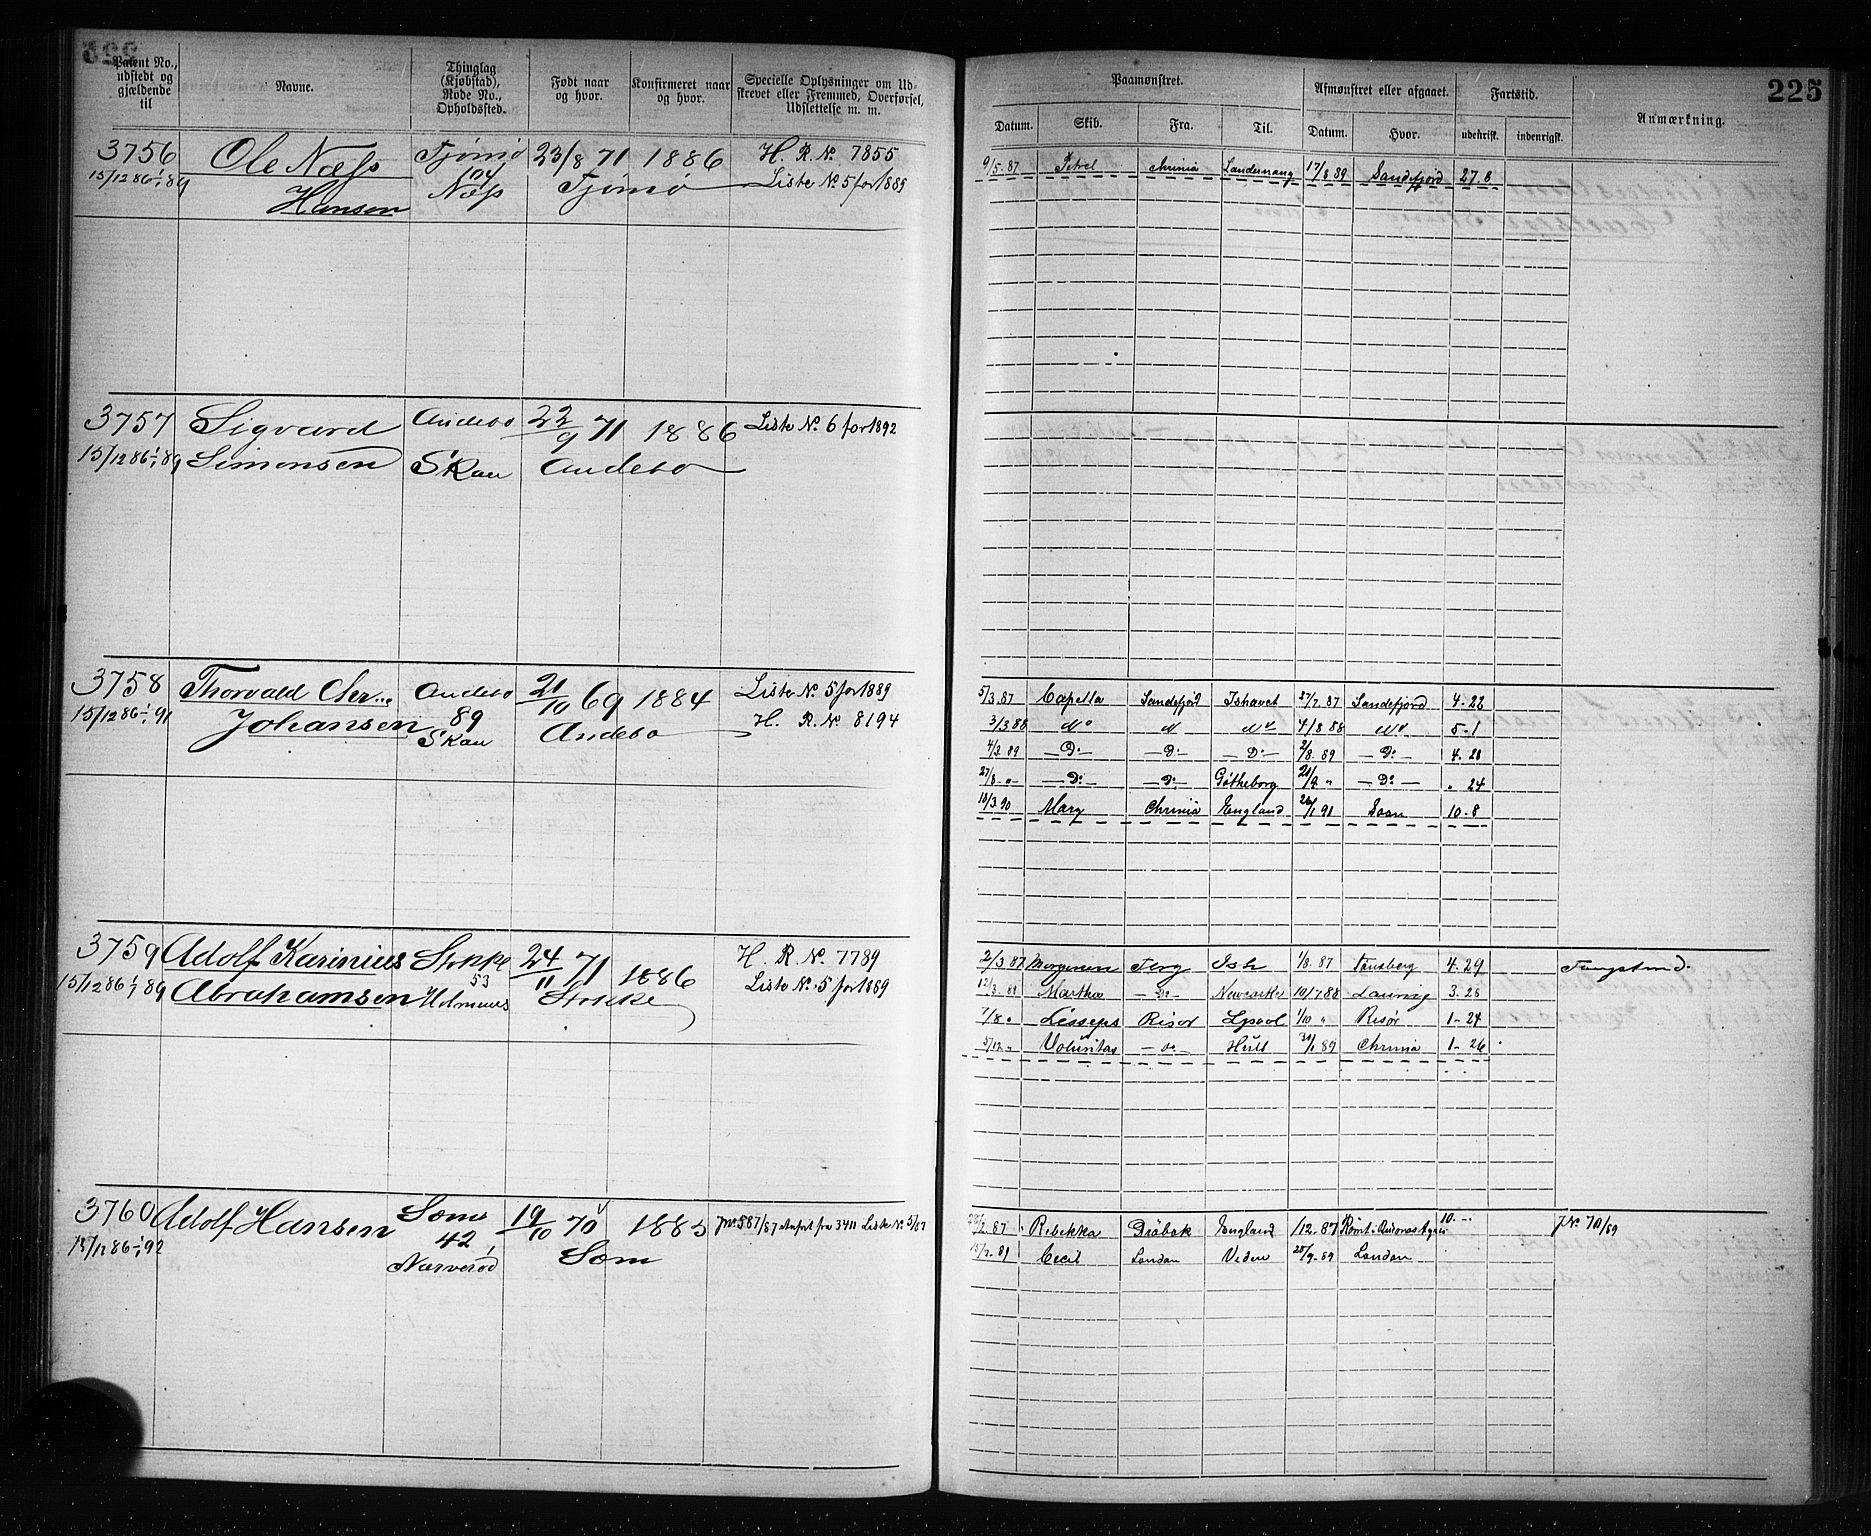 225
Patent No., udstedt og gjældende til
Navne.
Thinglag (Kjøbstad), Rode No., Opholdssted.
Født naar og hvor.
Konfirmeret naar og hvor.
Specielle Oplysninger om Udskrevet eller Fremmed, Overførsel, Udslettelse m. m.
Paamønstret.
Afmønstret eller afgaaet.
Fartstid.
Anmærkning.
Datum. Skib. Fra. Til. Datum. Hvor. udenrikst. indenrigst.
3756 Ole Næss Tjömö 23/8 71 1886 H. R. No 7855
15/12 86 1/1 89 Hansen 104 Næss Tjömö Liste No 5 for 1889
9/5 87 Petrel Chrnia 17/8 89 Sandefjord 27. 8
3757 Sigvard Andebo 22/9 71 1886 Liste No 6 for 1892
15/12 86 1/1 89 Simonsen Skau Andebo
3758 Thorvald Chr. Andebo 21/10 69 1884 Liste No 5 for 1889
15/12 86 1/1 91 Johansen 89 Skau Andebo H. R. No 8194
5/3 87 Capella Sandefjord Ishavet 27/7 87 Sandefjord 4. 22
3/3 88 Do Do Do 4/8 88 Do 5. 1
4/3 89 Do Do Do 2/8 89 Do 4. 28
27/8 " Do Do Gøtheborg 21/9 " Do " 24
18/3 90 Mary Chrnia England 26/1 91 10. 8
3759 Adolf Karinius Stokke 24/11 71 1886 H. R. No 7789
15/12 86 1/1 89 Abrahamsen 53 Stokke Liste No 5 for 1889
2/3 87 Morgenen Tbrg Ish 1/8 87 Tønsberg 4. 29
12/3 88 Martha Do Newcastle 10/7 88 Laurvig 3. 28
7/8 " Lesseps Risør Lpool 1/10 " Risør 1 - 24
5/12 " Voluntas do Hull 31/1 89 Chrnia 1 - 26
3760 Adolf Hansen Sem 19/10 70 1885 JNo 587/87 Anført fra 3411 Liste No 5/87
15/12 86 1/1 92 42 Narverød Sem
28/2 87 Rebekka Drøbak England /12 87 10. - JNo 70/89
Cecil London 28/9 89 London